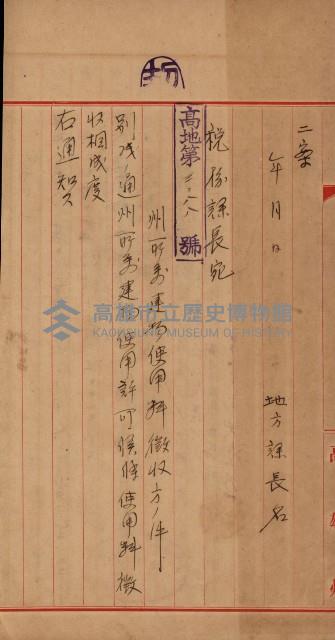 二案
年月日
地方課長名
税務課長宛
高地第 號
州所有建物使用料徴收方ノ件
別残ノ通州所有建 使用許可候條使用料徴
收相成度
右通知ス
高雄州
高雄市立歷史博物館
KAOHSIUNG MUSEUM OF HISTORY